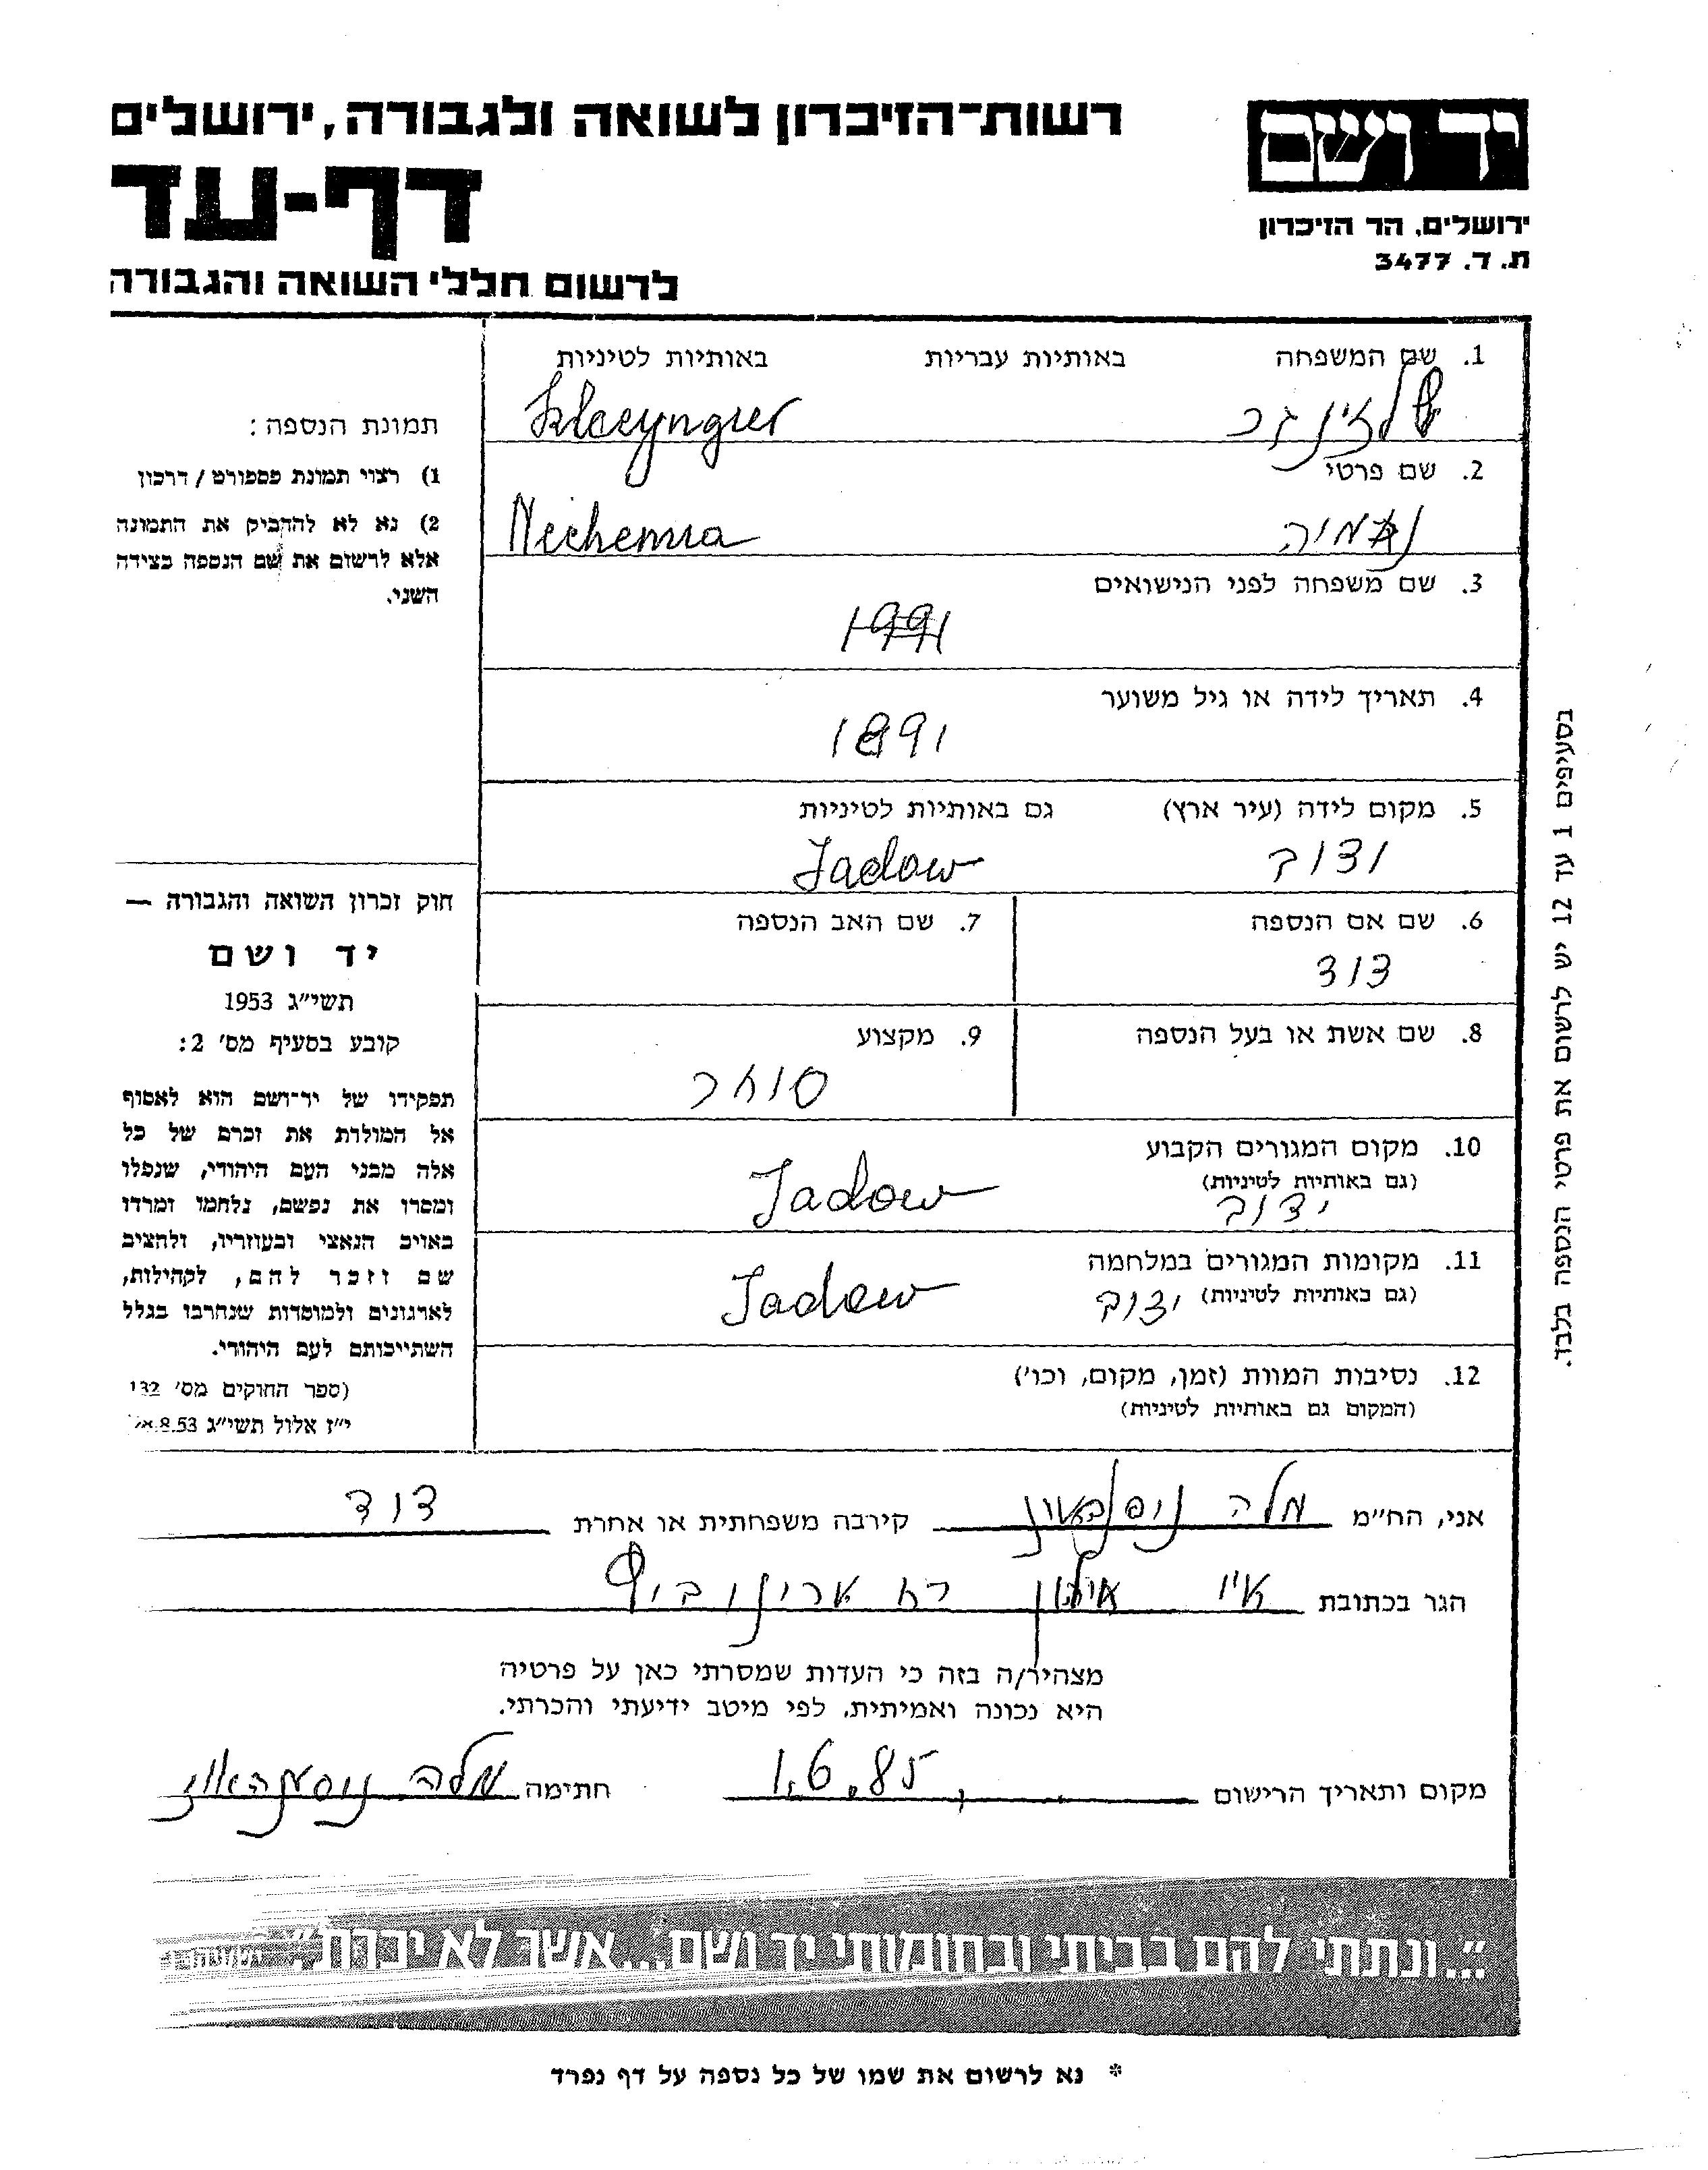 רשות־הזיכרון לשואה ולגבורה, ירושלים
יד ושם
דף-עד
ירושלים, הר הזיכרון
ת. ד. 3477
לרשום חללי השואה והגבורה
1. שם המשפחה באותיות עבריות באותיות לטיניות
שלזינגר
2. שם פרטי
נחמיה Nechemia
3. שם משפחה לפני הנישואים
1991
4. תאריך לידה או גיל משוער
1891
5. מקום לידה (עיר ארץ) גם באותיות לטיניות
ידוב Jadow
6. שם אם הנספה 7. שם האב הנספה
דוד
8. שם אשת או בעל הנספה 9. מקצוע
סוחר
10. מקום המגורים הקבוע
(גם באותיות לטיניות)
ידוב Jadow
11. מקומות המגורים במלחמה
(גם באותיות לטיניות) ידוב Jadow
12. נסיבות המוות (זמן, מקום, וכו')
(המקום גם באותיות לטיניות)
תמונת הנספה:
1) רצוי תמונת פספורט / דרכון
2) נא לא להדביק את התמונה
אלא לרשום את שם הנספה בצידה
השני.
חוק זכרון השואה והגבורה —
יד ושם
תשי"ג 1953
קובע בסעיף מס' 2:
תפקידו של יד־ושם הוא לאסוף
אל המולדת את זכרם של כל
אלה מבני העם היהודי, שנפלו
ומסרו את נפשם, נלחמו ומרדו
באויב הנאצי ובעוזריו, ולהציב
שם וזכר להם, לקהילות,
לארגונים ולמוסדות שנחרבו בגלל
השתייכותם לעם היהודי.
(ספר החוקים מס' 132
י"ז אלול תשי"ג 8.53
בסעיפים 1 עד 12 יש לרשום את פרטי הנספה בלבד.
אני, הח"מ מלה קירבה משפחתית או אחרת דוד
הגר בכתובת רח
מצהיר/ה בזה כי העדות שמסרתי כאן על פרטיה
היא נכונה ואמיתית, לפי מיטב ידיעתי והכרתי.
מקום ותאריך הרישום 1.6.85 חתימה מלה
"...ונתתי להם בביתי ובחומותי יד ושם...אשר לא יכרת"
* נא לרשום את שמו של כל נספה על דף נפרד